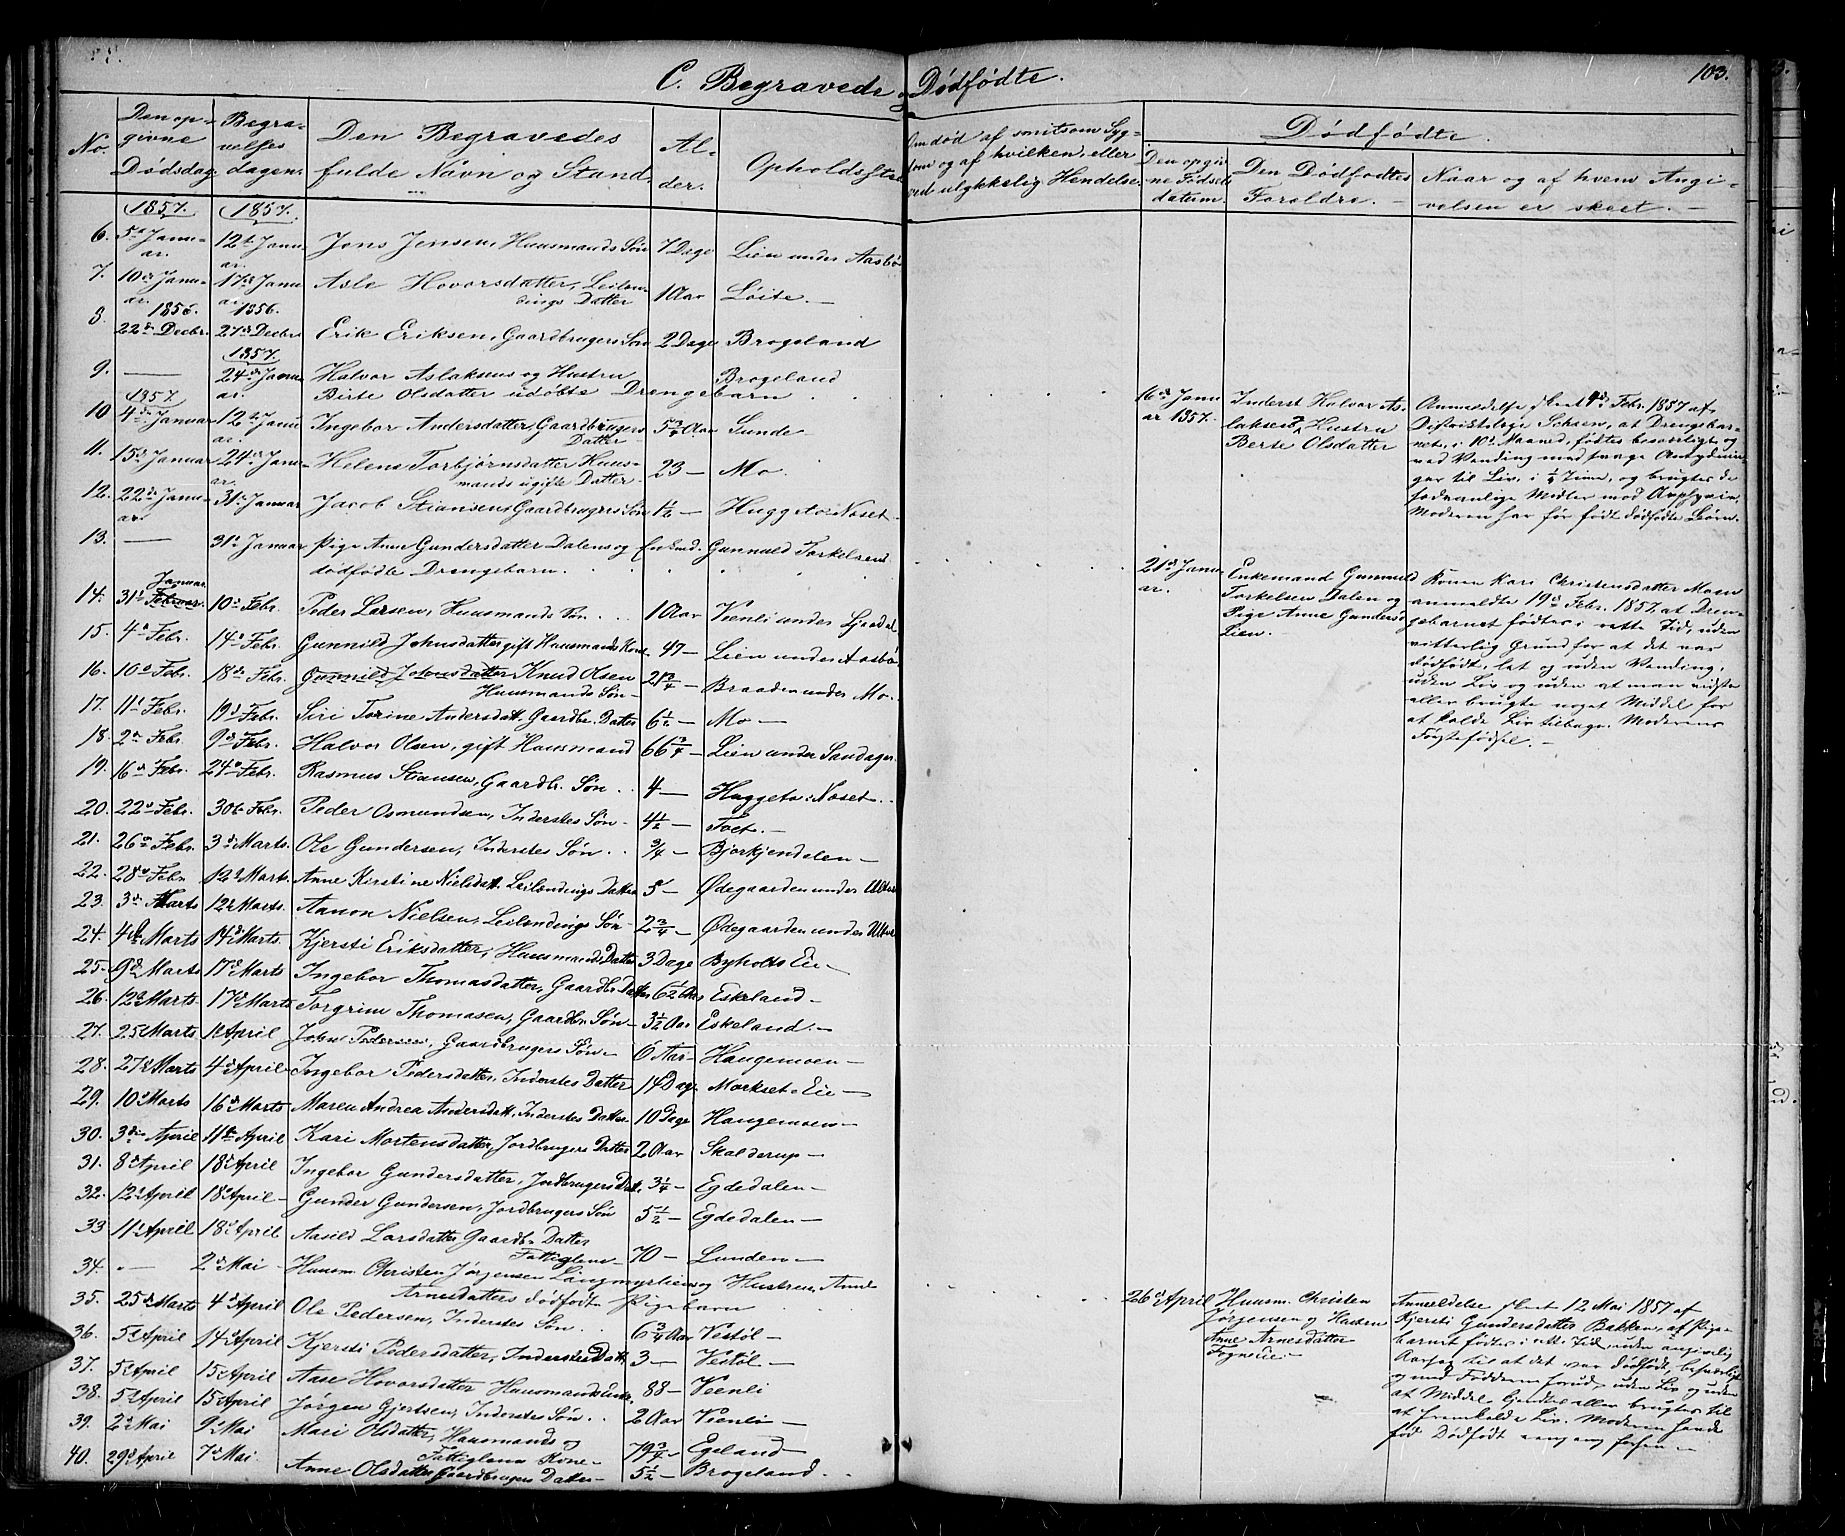 C. Begravede og Dødfødte.
103.
No. Den opgivne Dødsdag. Begravelses dagen. Den Begravedes fulde Navn og Stand. Alder. Opholdssted
Om død af smitsom Sygdom og af hvilken, eller ved ulykkelig Hendelse.
Dødfødte.
Den opgivne Fødsels datum. Den Dødfødtes Forældre. Naar og af hvem Angivelsen er skeet.
1857. 1857.
6. 5te Januar. 12te Januar. Jens Jensen, Huusmands Søn 7 Dage Lien under Aasbø
7. 10de Januar. 17de Januar. Asle Hovorsdatter, Leilendings Datter 1 Aar Løite.
1856. 1856.
8. 22de Decbr. 27de Decbr. Erik Eriksen, Gaardbrugers Søn 2 Dage Brogeland
1857.
9. — 24de Januar. Halvor Aslaksens og Hustru Brogeland
Birte Olsdatter udøbte Drengebarn
1857.
10 4de Januar 12te Januar. Ingebor Andersdatter, Gaardbrugers Datter 5 3/4 Aar Sunde
11. 15de Januar 24de Januar. Helene Torbjørnsdatter Huusmands ugifte Datter 23 — Mo.
12. 22de Januar. 31te Januar Jacob Stiansen Gaardbrugers Søn 1/2 — Huggeto i Noset
13. — 31te Januar Pige Anne Gundersdatter Dalens og Enkemd. Gunnuld Torkelsens
dødfødte Drengebarn.
Januar
14. 31te Februar. 10de Febr. Peder Larsen, Huusmands Søn 1 Aar Veenli under Ljaadal
15. 4de Febr. 14de Febr. Gunnild Johnsdatter gift Huusmands Kone 47 — Lien under Aasbø
16. 10de Febr. 18de Febr. Gunnild Johnsdatter Knud Olsen Huusmands Søn 21 3/4 — Braaden under Mo.
17. 11te Febr. 19de Febr. Siri Torine Andersdatt. Gaardbr. Datter 6 1/2 — Mo —
18. 2den Febr. 9de Febr. Halvor Olsen, gift Huusmand 66 3/4 — Lien under Sandager
19. 16de Febr. 24de Febr. Rasmus Stiansen, Gaardbr. Søn 4 — Huggeto i Noset
20. 22de Febr. 30te Febr. Peder Osmundsen, Inderstes Søn 4 1/2 — Toet.
21. 26de Febr. 3de Marts. Ole Gundersen, Inderstes Søn 3/4 — Bjorkjendalen —
22. 28de Febr 12te Marts. Anne Kirstine Nielsdatt. Leilendings Datter 5 — Ødegaarden under
23. 3de Marts 12te Marts. Aanon Nielsen, Leilendings Søn 2 3/4 — Ødegaarden under
24. 4de Marts 14de Marts. Kjersti Eriksdatter, Huusmands Datter 3 Dage Byholts Eie —
25. 9de Marts 17de Marts Ingebor Thomasdatter, Gaardbr. Datter 6 1/2 Aar Eskeland —
26. 12te Marts. 17de Marts Torgrim Thomasen, Gaardbr. Søn 3 1/2 Aar Eskeland. —
27. 25de Marts 1te April John Pedersen, Gaardbrugers Søn 6 Aar Haugemoen —
28. 27de Marts 4de April Ingebor Pedersdatter, Inderstes Datter 14 Dage Morkset Eie —
29. 10de Marts 16de Marts Maren Andrea Andersdatt, Inderstes Datter 10 Dage Haugemoen —
30. 3de April 11te April Kari Mortensdatter, Jordbrugers Datter 2 Aar Skalderup —
31. 8de April 18de April Ingebor Gundersdatter, Jordbrugers Datt. 3 1/4 — Egdedalen —
32. 12te April 18de April Gunder Gundersen, Jordbrugers Søn 5 1/2 — Egdedalen —
33 11te April 18de April Aasild Larsdatter Gaardb. Datter Fattiglem 70 — Lunden —
34. — 2den Mai Huusm Christen Jørgensen Langmyrliens og Hustru Anne
Arnesdatters dødfødt Pigebarn
35. 25de Marts 4de April Ole Pedersen, Inderstes Søn 6 3/4 Aar Vestøl —
36. 5te April 14de April Kjersti Pedersdatter, Inderstes Datt 3 — Vestøl —
37. 5te April 15de April Aase Hovorsdatter Huusmands Enke 88 — Veenli
38. 5te April 15de April Jørgen Gjertsen, Inderstes Søn 2 Aar Veenli —
39. 2den Mai 9de Mai Mari Olsdatter, Huusmands og Fattiglem Kone 79 3/4 — Egeland —
40. 29de April 7de Mai Anne Olsdatter Gaardbrugers Datter 5 1/2 — Brogeland
16de Januar 1857.
Inderst Halvor Aslaksen, Hustru
Berte Olsdatter
Anmeldelse skeet 4de Febr. 1857 af
Distriktslæge Schoen, at Drengebarnet, i 10de Maaned, fødtes besværligt og
ved Vending med svage Antydninger til Liv, i 1/4 Time, og brugtes de
sedvanlige Midler mod Asphyxie.
Moderen har før født dødfødte Børn.
21de Januar.
Enkemand Gunnuld
Torkelsen Dalen og
Pige Anne Gundersd
Lien.
Konen Kari Christensdatter Moen
anmeldte 19de Febr. 1857, at Drengebarnet fødtes i rette Tid, uden
vitterlig Grund for at det var
dødfødt, let og uden Vending,
uden Liv og uden at man vidste
eller brugte noget Middel for
at kalde Liv tilbage. Moderens
Førstefødsel. —
26de April
Huusm. Christen
Jørgensen og Hustru
Anne Arnesdatter
Anmeldelse skeet 12 Mai 1857 af
Kjersti Gundersdatter Bakken, at Pigebarnet fødtes i rette Tid, uden angivelig
Aarsag til at det var Dødfødt, besværligt
og med Fødderne forud, uden Liv og uden
at Middel kjendtes eller brugtes til
at fremkalde Liv. Moderen havde
født Dødfødt een gang forhen —